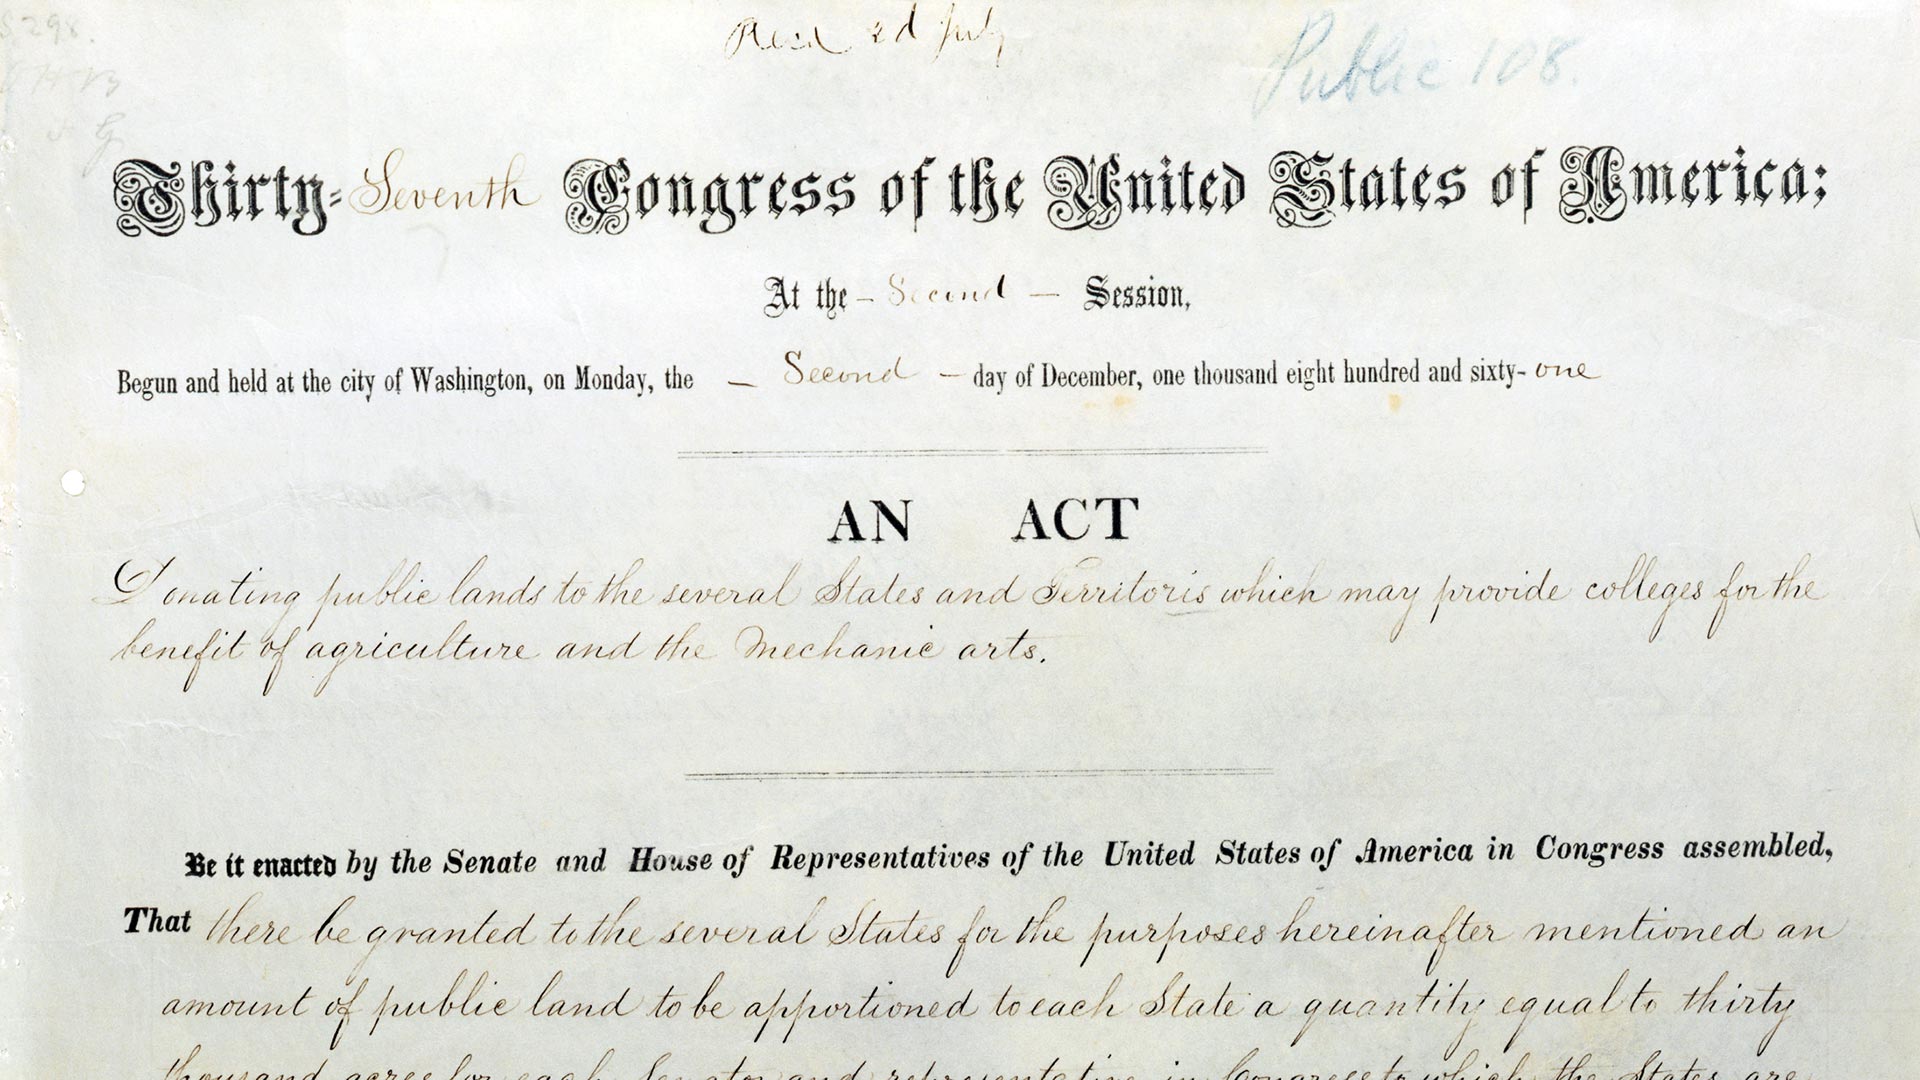 S. 298.
Recd 2d July
Public 108.
Thirty-Seventh Congress of the United States of America;
At the - Second - Session,
Begun and held at the city of Washington, on Monday, the - Second - day of December, one thousand eight hundred and sixty-one
AN ACT
Donating public lands to the several States and Territoris which may provide colleges for the
benefit of agriculture and the Mechanic arts.
Be it enacted by the Senate and House of Representatives of the United States of America in Congress assembled,
That there be granted to the several States for the purposes hereinafter mentioned an
amount of public land to be apportioned to each State a quantity equal to thirty
thousand acres for each Senator and representative in Congress to which the States are